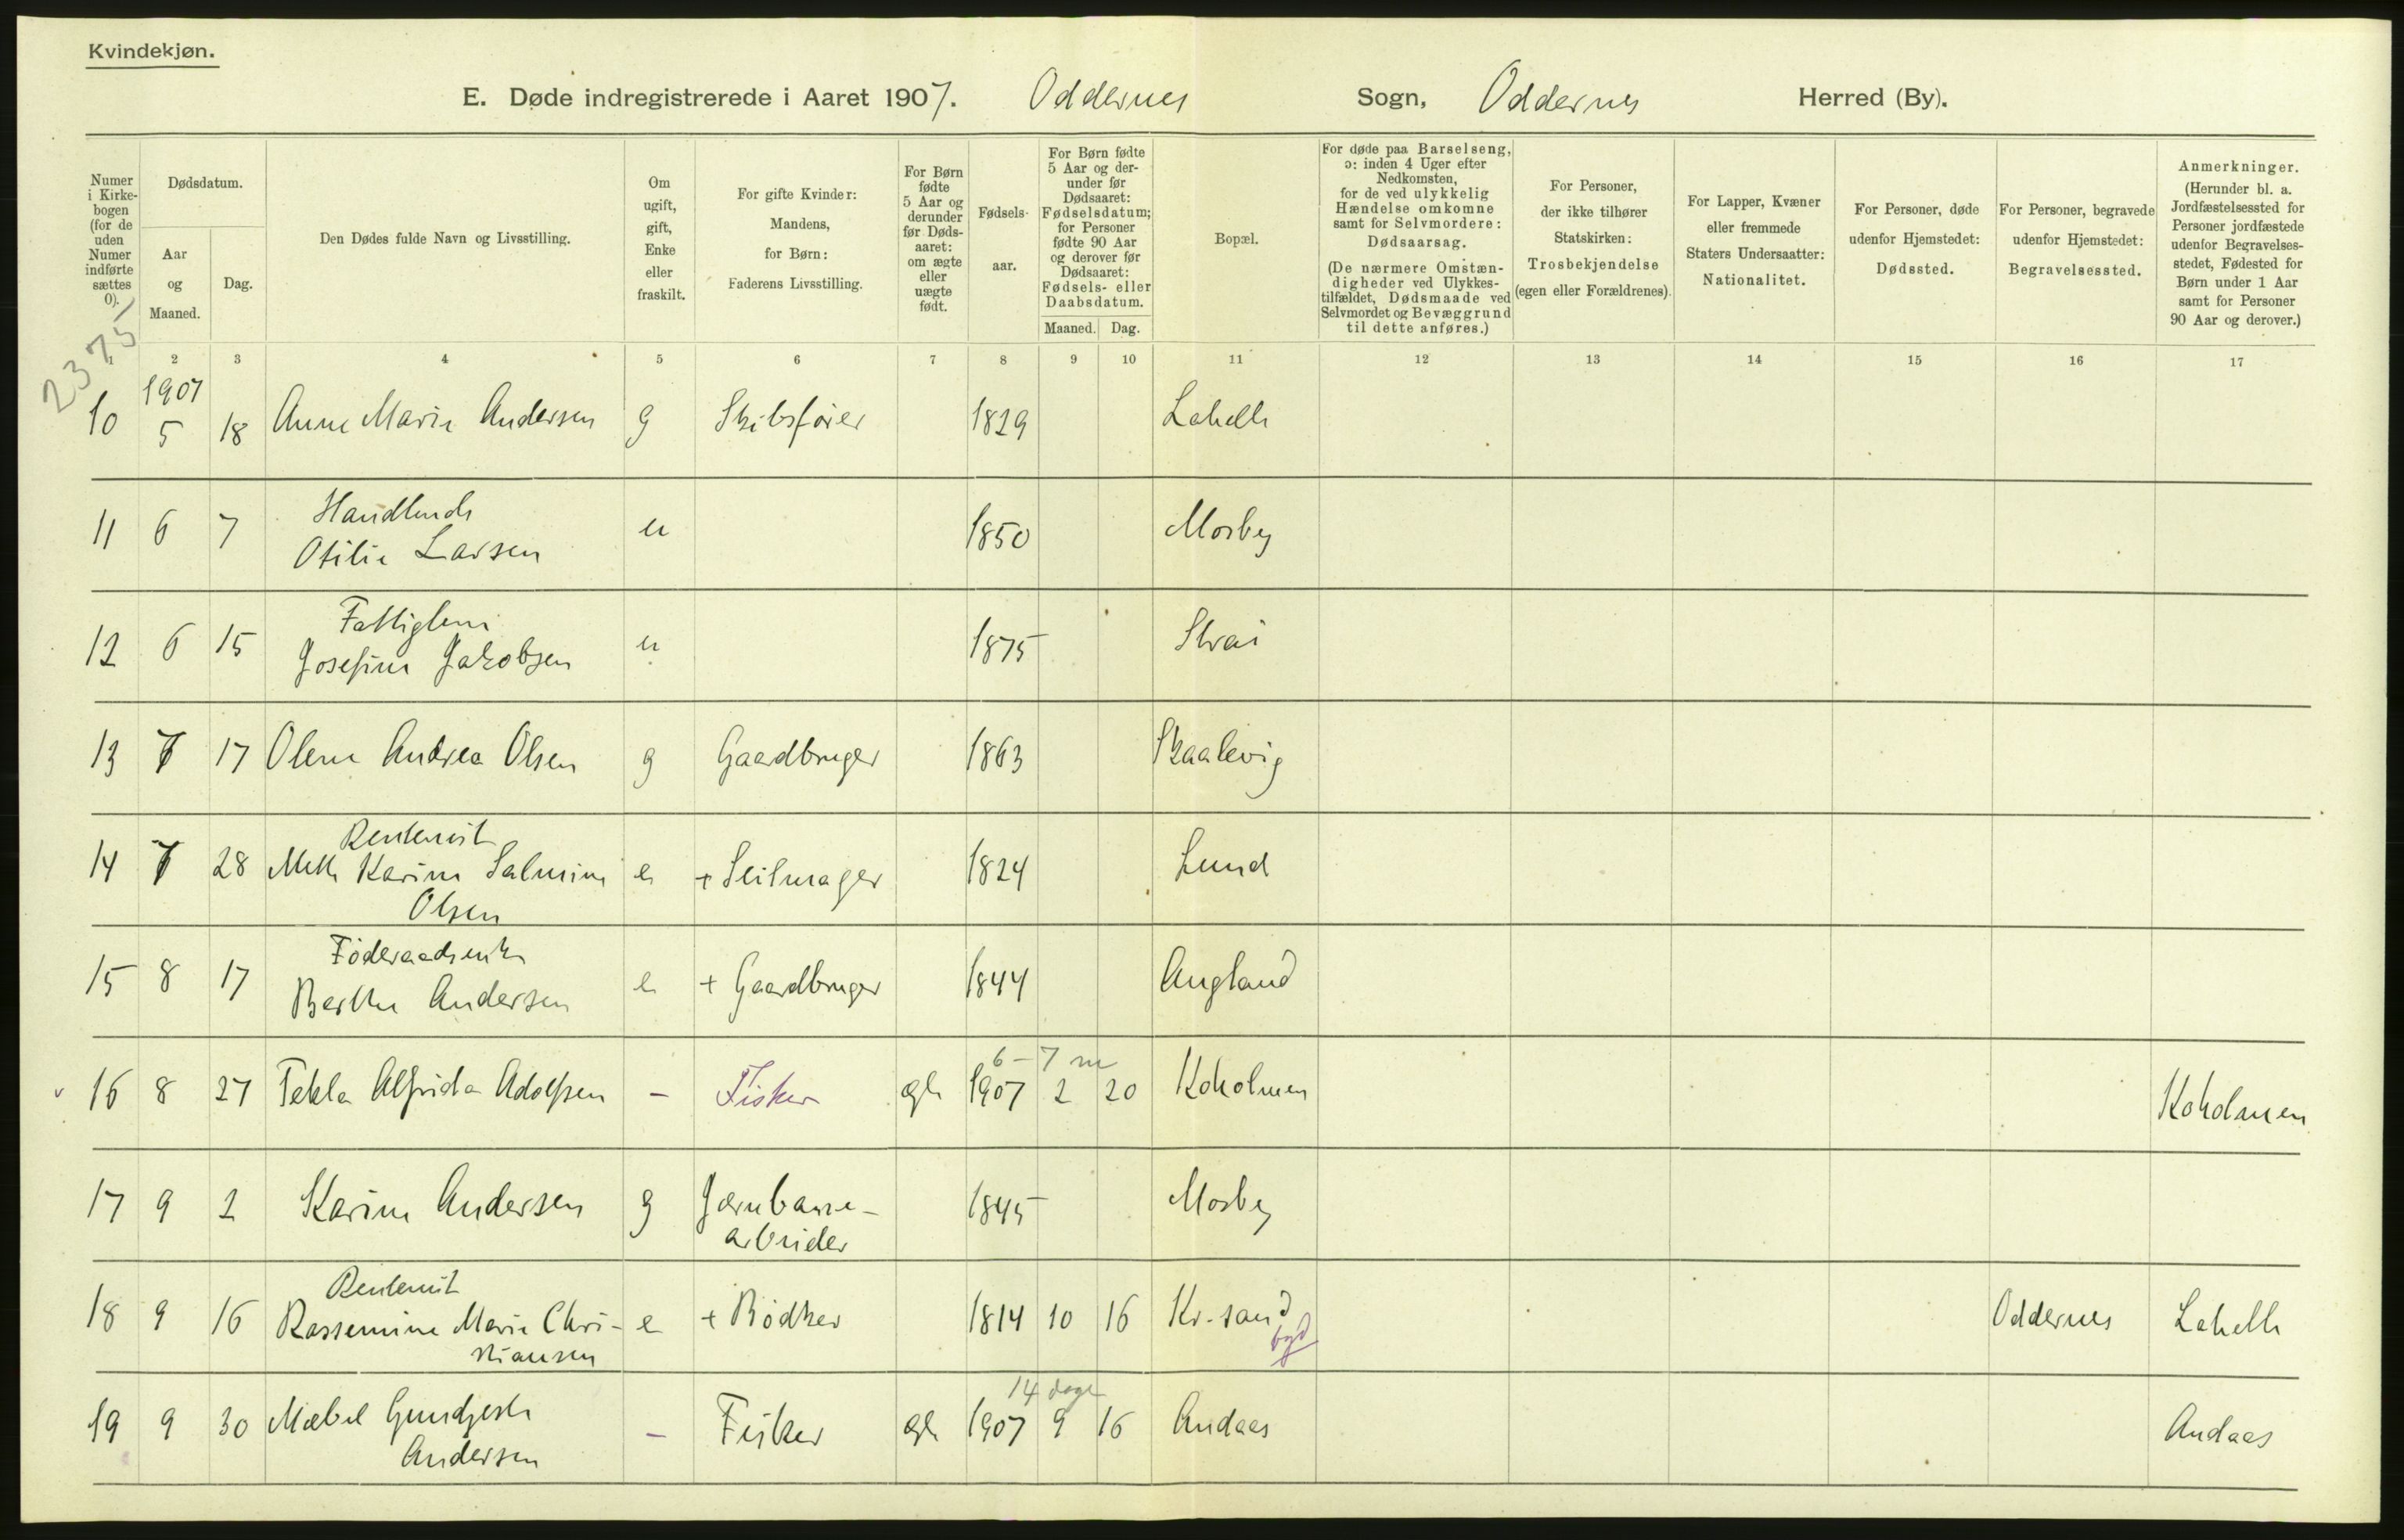 Kvindekjøn.
E. Døde indregistrerede i Aaret 1907. Oddernes Sogn, Oddernes Herred (By).
Numer i Kirkebogen (for de uden Numer indførte sættes 0).
Dødsdatum.
Aar og Maaned.
Dag.
Den Dødes fulde Navn og Livsstilling.
Om ugift, gift, Enke eller fraskilt.
For gifte Kvinder: Mandens, for Børn: Faderens Livsstilling.
For Børn fødte 5 Aar og derunder før Dødsaaret: om ægte eller uægte født.
Fødselsaar.
For Børn fødte 5 Aar og derunder før Dødsaaret: Fødselsdatum; for Personer fødte 90 Aar og derover før Dødsaaret: Fødsels- eller Daabsdatum.
Maaned. Dag.
Bopæl.
For døde paa Barselseng, ɔ: inden 4 Uger efter Nedkomsten, for de ved ulykkelig Hændelse omkomne samt for Selvmordere: Dødsaarsag.
(De nærmere Omstændigheder ved Ulykkestilfældet, Dødsmaade ved Selvmordet og Bevæggrund til dette anføres.)
For Personer, der ikke tilhører Statskirken: Trosbekjendelse (egen eller Forældrenes).
For Lapper, Kvæner eller fremmede Staters Undersaatter: Nationalitet.
For Personer, døde udenfor Hjemstedet: Dødssted.
For Personer, begravede udenfor Hjemstedet: Begravelsessted.
Anmerkninger.
(Herunder bl. a. Jordfæstelsessted for Personer jordfæstede udenfor Begravelsesstedet, Fødested for Børn under 1 Aar samt for Personer 90 Aar og derover.)
1 2 3 4 5 6 7 8 9 10 11 12 13 14 15 16 17
2375
1907
10 5 18 Anne Marie Andersen g Skibsfører 1829 Lahelle
Handlende
11 6 7 Otilie Larsen u 1850 Mosby
Fattiglem
12 6 15 Josefine Jakobsen u 1875 Strai
13 7 17 Olene Andrea Olsen g Gaardbruger 1863 Skaalevig
Rentenist
14 7 28 Mette Karine Salmine e + Seilmager 1824 Lund
Olsen
Føderaadsenke
15 8 17 Berthe Andersen e + Gaardbruger 1844 Augland
6-7 m
16 8 27 Tekla Alfrida Adolfsen - Fisker gte 1907 2 20 Koholmen Koholmen
17 9 2 Karine Andersen g Jernbane- 1845 Mosby
arbeider
Rentenist
18 9 16 Rassemine Marie Chri- e + Bødker 1814 10 16 Kr.sand Oddernes Lahelle
stiansen by
14 dage
19 9 30 Mabel - Fisker gte 1907 9 16 Andaas Andaas
Andersen